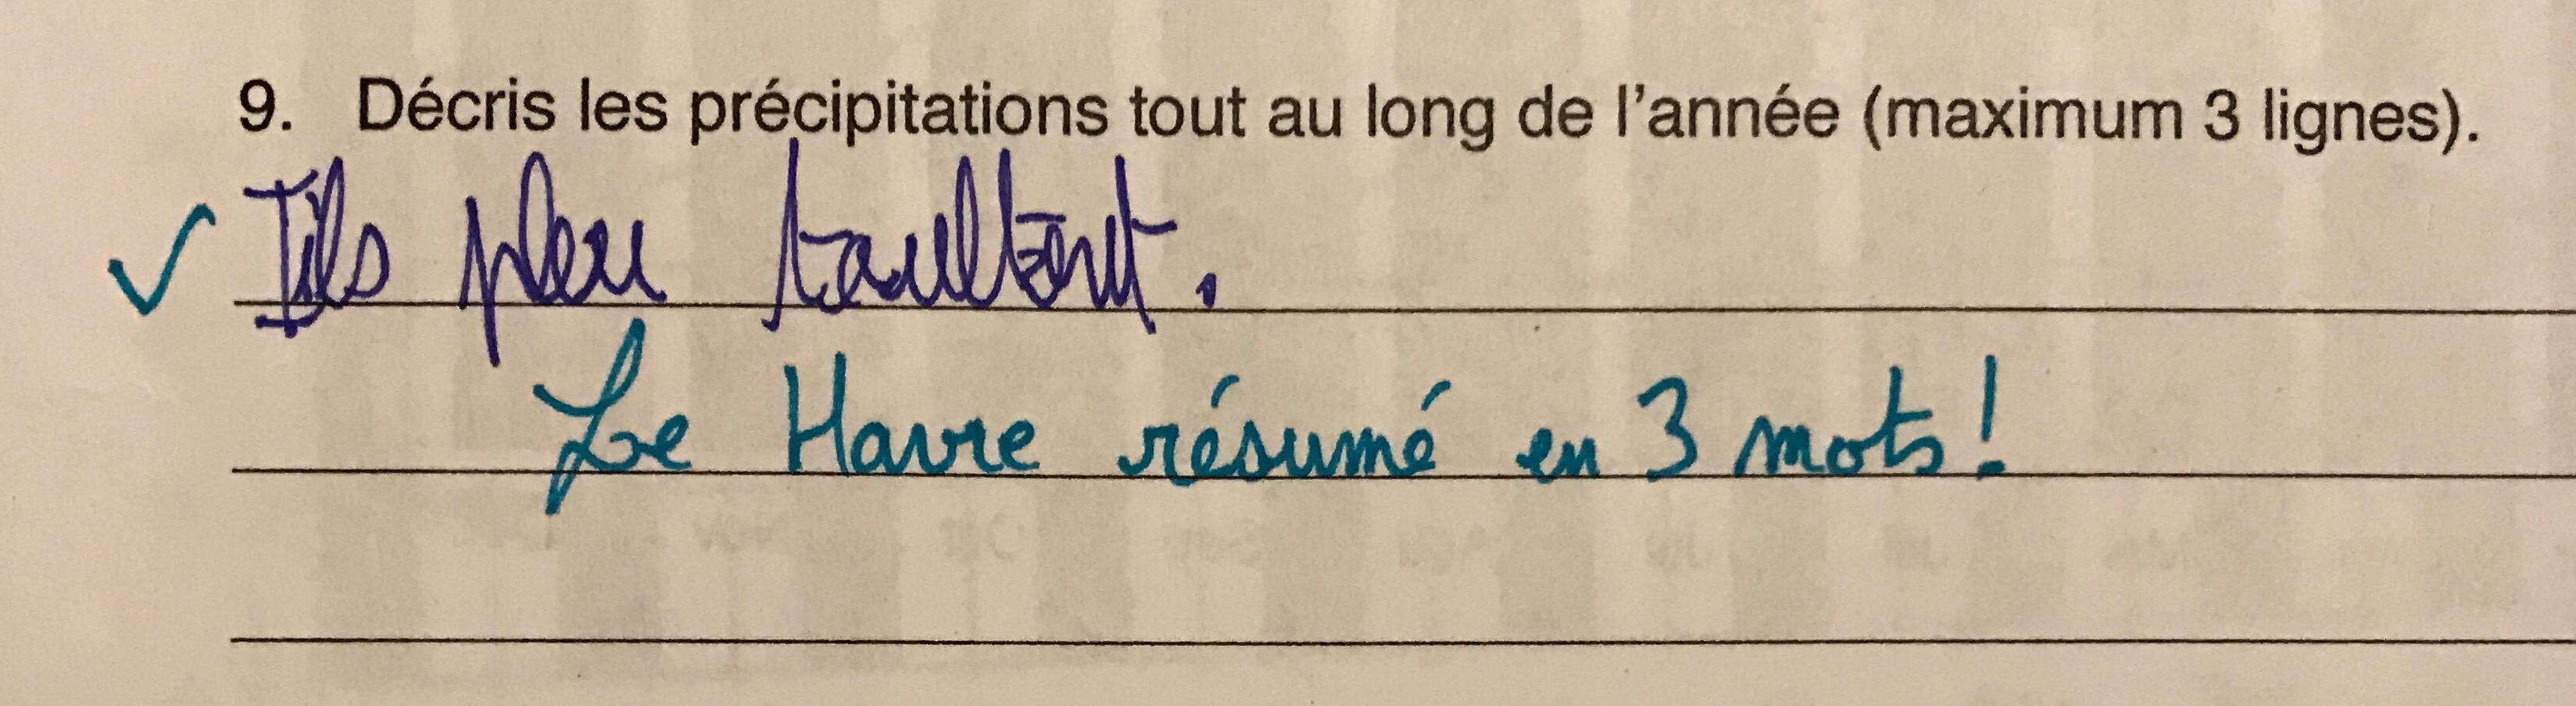 9. Décris les précipitations tout au long de l'année (maximum 3 lignes).
Ils pleu
Le Havre résumé en 3 mots!